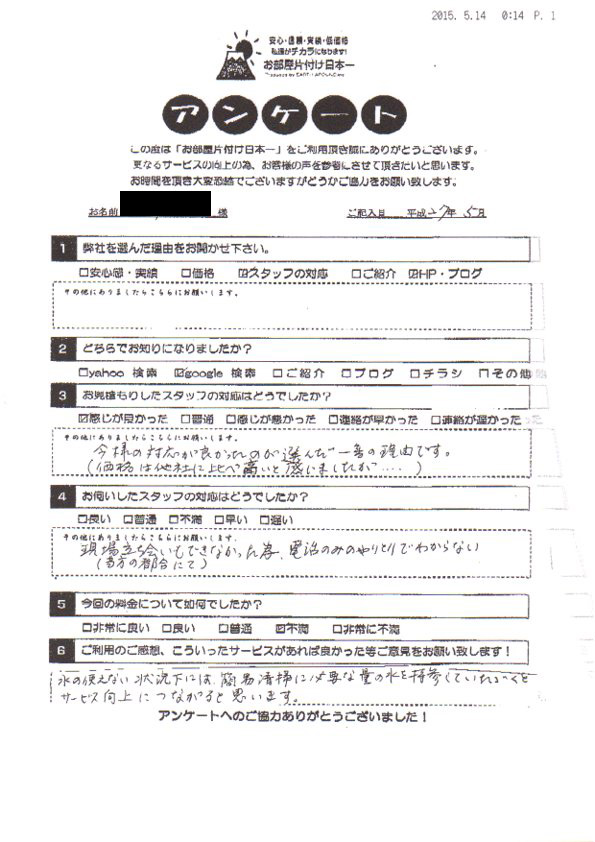 2015. 5.14 0:14 P. 1
安心・信頼・実績・低価格
私達がチカラになります!
お部屋片付け日本一
アンケート
この度は「お部屋片付け日本一」をご利用頂き誠にありがとうございます。
更なるサービスの向上の為、お客様の声を参考にさせて頂きたいと思います。
お時間を頂き大変恐縮でございますがどうかご協力をお願い致します。
お名前 様 ご記入日 平成27年 5月
1 弊社を選んだ理由をお聞かせ下さい。
□安心感・実績 □価格 ☑スタッフの対応 □ご紹介 ☑HP・ブログ
その他にありましたらこちらにお願いします。
2 どちらでお知りになりましたか?
□yahoo 検索 ☑google 検索 □ご紹介 □ブログ □チラシ □その他
3 お見積もりしたスタッフの対応はどうでしたか?
☑感じが良かった □普通 □感じが悪かった □連絡が早かった □連絡が遅かった
その他にありましたらこちらにお願いします。
今様の対応が良かったのが選んだ一番の理由です。
(価格は他社に比べ高いと感じましたが....)
4 お伺いしたスタッフの対応はどうでしたか?
□良い □普通 □不満 □早い □遅い
その他にありましたらこちらにお願いします。
現場立ち会いもできなかった為、電話のみのやりとりでわからない
(当方の都合にて)
5 今回の料金について如何でしたか?
□非常に良い □良い □普通 ☑不満 □非常に不満
6 ご利用のご感想、こういったサービスがあれば良かった等ご意見をお願い致します!
水の使えない状況下には、簡易清掃に必要な量の水を持参していただくと
サービス向上につながると思います。
アンケートへのご協力ありがとうございました!